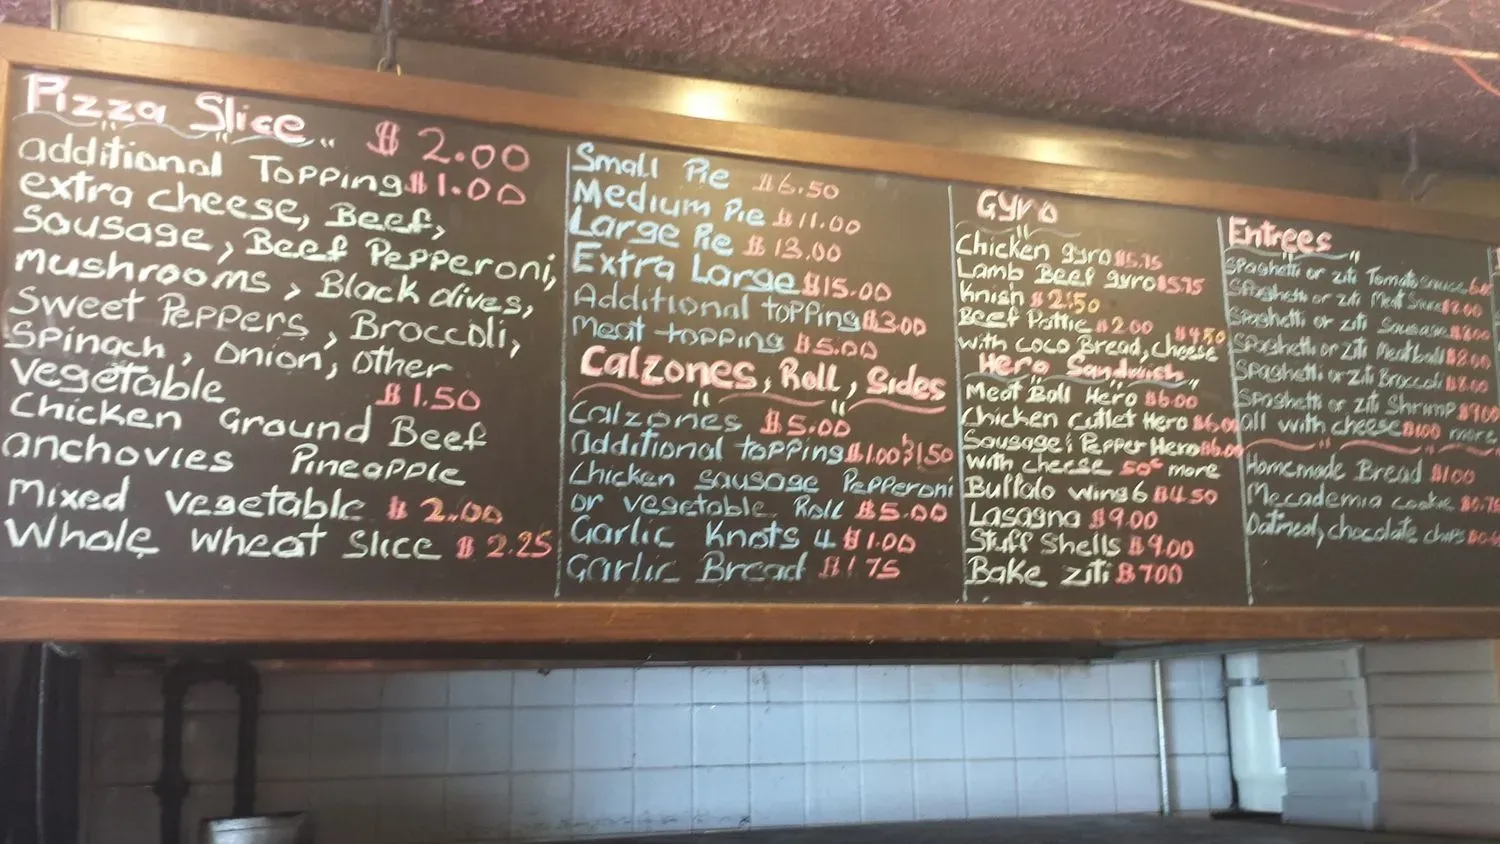 Pizza Slice $ 2.00
additional Topping $1.00
extra cheese, Beef,
Sausage, Beef Pepperoni,
mushrooms, Black olives,
Sweet Peppers, Broccoli,
Spinach, onion, other
vegetable $ 1.50
Chicken Ground Beef
anchovies Pineapple
Mixed vegetable $ 2.00
Whole wheat slice $ 2.25
Small Pie $6.50
Medium Pie $11.00
Large Pie $ 13.00
Extra Large $15.00
Additional topping $3.00
Meat topping $5.00
Calzones, Roll, Sides
Calzones $5.00
additional topping $1.00 $1.50
Chicken sausage Pepperoni
or vegetable Roll $5.00
Garlic Knots 4 $1.00
Garlic Bread $1.75
Gyro
Chicken gyro $5.75
Lamb Beef gyro $5.75
Knish $2.50
Beef Pattie $2.00
with coco Bread, cheese $4.50
Hero Sandwich
Meat Ball Hero $6.00
Chicken Cutlet Hero $6.00
Sausage & Pepper Hero $6.00
with cheese 50¢ more
Buffalo wing 6 $4.50
Lasagna $9.00
Stuff Shells $9.00
Bake ziti $7.00
Entrees
Spaghetti or ziti Tomato sauce
Spaghetti or ziti Meat Sauce $8.00
Spaghetti or ziti Sausage $8.00
Spaghetti or ziti Meatball $8.00
Spaghetti or ziti Broccoli $8.00
Spaghetti or ziti Shrimp $9.00
all with cheese $1.00 more
Homemade Bread $1.00
Mecademia cookie $0.75
Oatmeal, chocolate chips